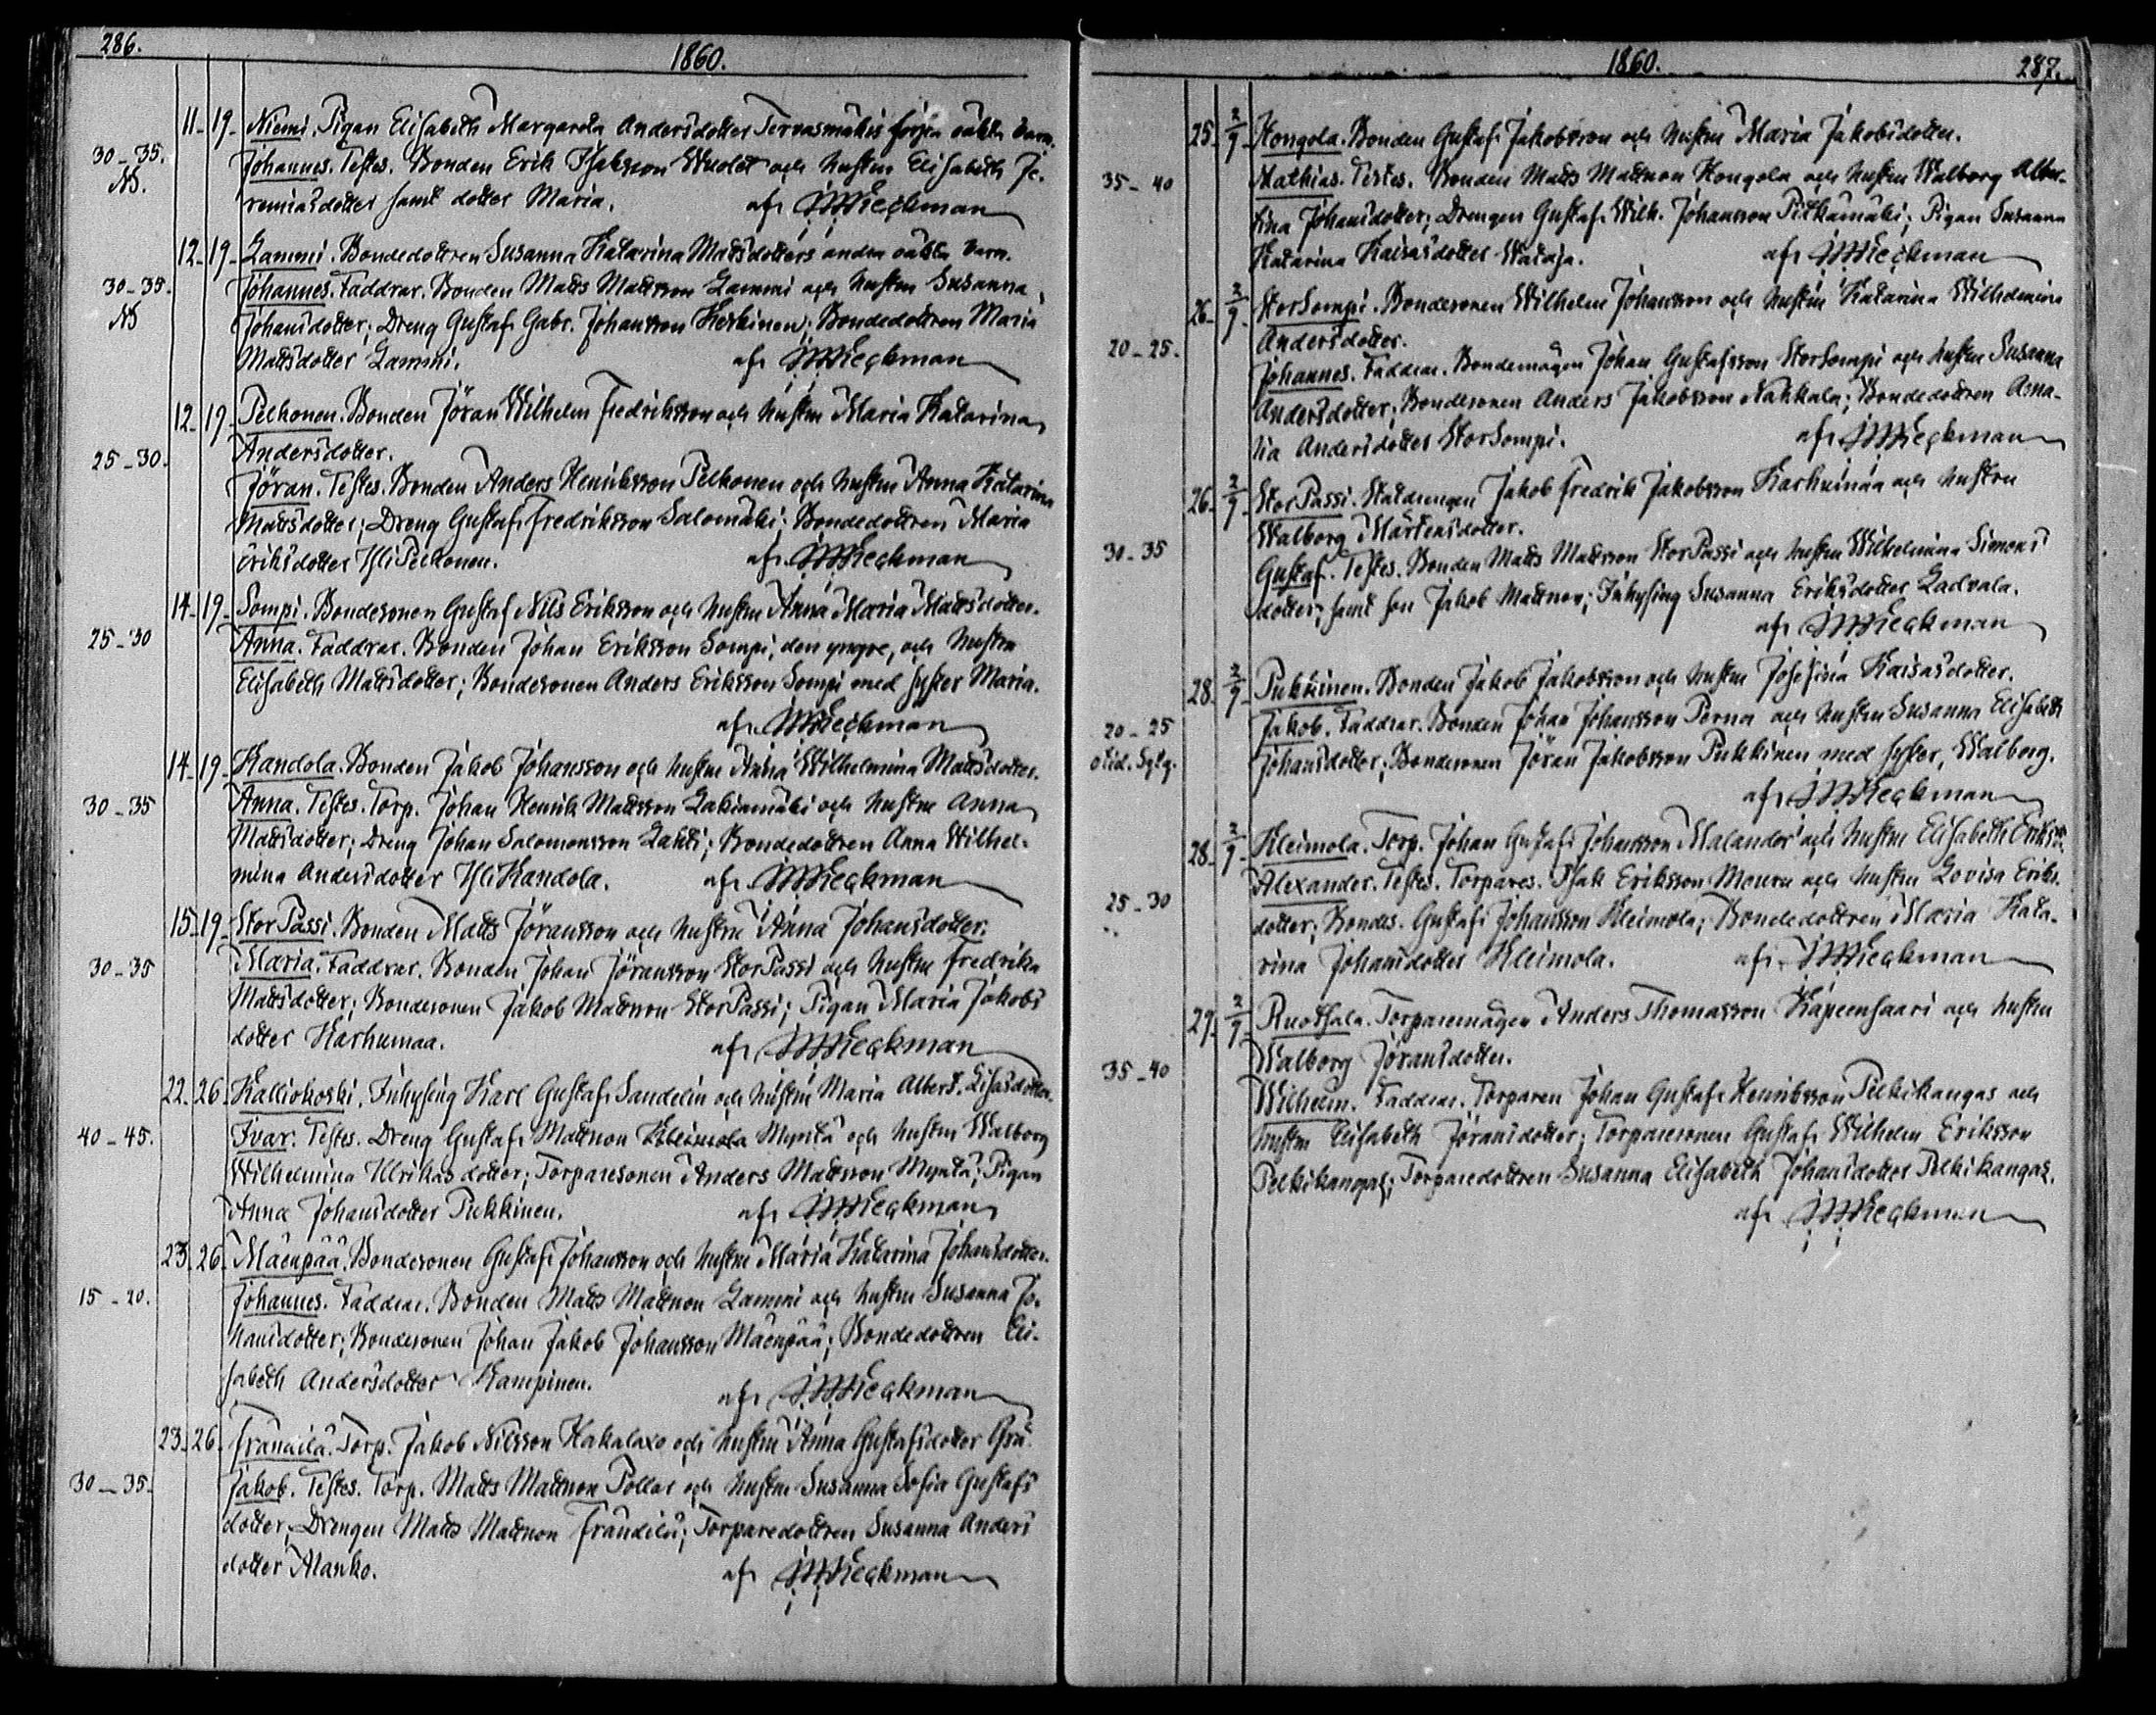 286.
1860.
11. 19. Niemi. Pigan Elisabeth Margareta Andersdotter Tervasmäkis första oäkta barn.
30-35. Johannes. Testes. Bonden Erik Isaksson och hustru Elisabeth Je-
remiasdotter samt dotter Maria. af
12. 19. Lammi. Bondedottren Susanna Katarina Mattsdotters andra oäkta barn.
30-35. Johannes. Faddrar. Bonden Matts Mattsson Lammi och hustru Susanna
Johansdotter; Dreng Gustaf Gabr. Johansson Keskinen; Bondedottren Maria
Mattsdotter Lammi. af
12. 19. Pelkonen. Bonden Jöran Wilhelm Fredriksson och hustru Maria Katarina
25-30. Andersdotter.
Jöran. Testes. Bonden Anders Henriksson Pelkonen och hustru Anna Katarina
Mattsdotter; Dreng Gustaf Fredriksson Salomäki; Bondedottren Maria
Eriksdotter Pelkonen. af
14. 19. Sompi. Bondesonen Gustaf Nils Eriksson och hustru Anna Maria Mattsdotter.
25-30 Anna. Faddrar. Bonden Johan Eriksson Sompi, den yngre, och hustru
Elisabeth Mattsdotter; Bondesonen Anders Eriksson Sompi med syster Maria.
af
14. 19. Kandola. Bonden Jakob Johansson och hustru Anna Wilhelmina Mattsdotter.
30-35 Anna. Testes. Torp. Johan Henrik Mattsson Lakiamäki och hustru Anna
Mattsdotter; Dreng Johan Salomonsson Lahti; Bondedottren Anna Wilhel-
mina Andersdotter Kandola. af
15. 19. StorPassi. Bonden Matts Jöransson och hustru Anna Johansdotter.
30-35 Maria. Faddrar. Bonden Johan Jöransson StorPassi och hustru Fredrika
Mattsdotter; Bondesonen Jakob Mattsson StorPassi; Pigan Maria Jakobs
dotter Karhumaa. af
22. 26. Kalliokoski. Inhysing Karl Gustaf Sandelin och hustru Maria Albert. Lisasdotter.
40-45. Ivar. Testes. Dreng Gustaf Mattsson Myntä och hustru Walborg
Wilhelmina Ulrikasdotter; Torparesonen Anders Mattsson Myntä; Pigan
Anna Johansdotter Pukkinen. af
23. 26. Mäenpää. Bondesonen Gustaf Johansson och hustru Maria Katarina Johansdotter.
15-20. Johannes. Faddrar. Bonden Matts Mattsson Lammi och hustru Susanna Jo-
hansdotter; Bondesonen Johan Jakob Johansson Mäenpää; Bondedottren Eli-
sabeth Andersdotter Kampinen. af
23. 26. Frändilä. Torp. Jakob Nilsson Hakalaxo och hustru Anna Gustafsdotter
30-35. Jakob. Testes. Torp. Matts Mattsson Pollar och hustru Susanna Sofia Gustafs
dotter; Drengen Matts Mattsson Frändilä; Torparedottren Susanna Anders
dotter Alanko. af
1860.
287.
25. 2/9. Hongola. Bonden Gustaf Jakobsson och hustru Maria Jakobsdotter.
35-40 Mathias. Testes. Bonden Matts Mattsson Hongola och hustru Walborg Alber-
tina Johansdotter; Drengen Gustaf Wilh. Johansson Pitkämäki; Pigan Susanna
Katarina Kaisasdotter Wataja. af
26. 2/9. StorSompi. Bondesonen Wilhelm Johansson och hustru Katarina Wilhelmina
20-25. Andersdotter.
Johannes. Faddrar. Bondemågen Johan Gustafsson StorSompi och hustru Susanna
Andersdotter; Bondesonen Anders Jakobsson Nahkala; Bondedottren Ama-
lia Andersdotter StorSompi. af
26. 2/9. StorPassi. Statdrengen Jakob Fredrik Jakobsson Karhumaa och hustru
Walborg Mårtensdotter.
30-35 Gustaf. Testes. Bonden Matts Mattsson StorPassi och hustru Wilhelmina Simons
dotter; samt son Jakob Mattsson; Inhysing Susanna Eriksdotter Ladvala.
af
28. 2/9. Pukkinen. Bonden Jakob Jakobsson och hustru Josefina Kaisasdotter.
20-25 Jakob. Faddrar. Bonden Johan Johansson Perna och hustru Susanna Elisabeth
Johansdotter; Bondesonen Jöran Jakobsson Pukkinen med syster, Walborg.
af
28. 2/9. Kleimola. Torp. Johan Gustaf Johansson Malander och hustru Elisabeth
25-30 Alexander. Testes. Torpares. Isak Eriksson och hustru Lovisa Eriks-
dotter; Bondes. Gustaf Johansson Kleimola; Bondedottren Maria Kata-
rina Johansdotter Kleimola. af
29. 2/9. Ruotsala. Torparemågen Anders Thomasson Käpeensaari och hustru
35-40 Walborg Jöransdotter.
Wilhelm. Faddrar. Torparen Johan Gustaf Henriksson Pelkikangas och
hustru Elisabeth Jöransdotter; Torparesonen Gustaf Wilhelm Eriksson
Pelkikangas; Torparedottren Susanna Elisabeth Johansdotter Pelkikangas.
af